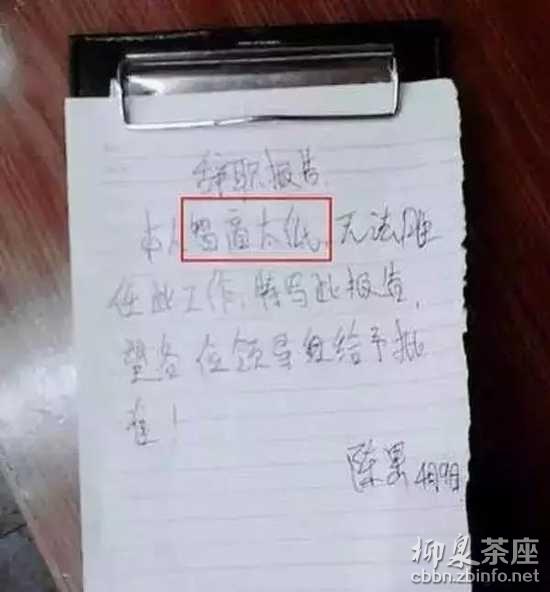 辞职报告
本人智商太低,无法胜
任此工作,特写此报告,
望各位领导给予批
准!
陈果 4月9日
柳泉茶座
cbbn.zbinfo.net